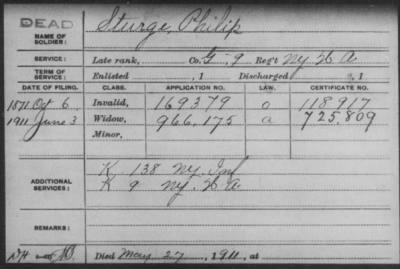 DEAD
NAME OF SOLDIER: Sturge, Philip
SERVICE: Late rank, Co. G, 9 Reg't Ny. H A
TERM OF SERVICE: Enlisted , 1 Discharged , 1
DATE OF FILING. CLASS. APPLICATION NO. LAW. CERTIFICATE NO.
1871 Oct 6. Invalid, 169379 o 118917
1911 June 3 Widow, 966,175 a 725,809
Minor,
ADDITIONAL SERVICES: K. 138 Ny. Inf
K 9 Ny. H A
REMARKS:
Died May 27, 1911, at